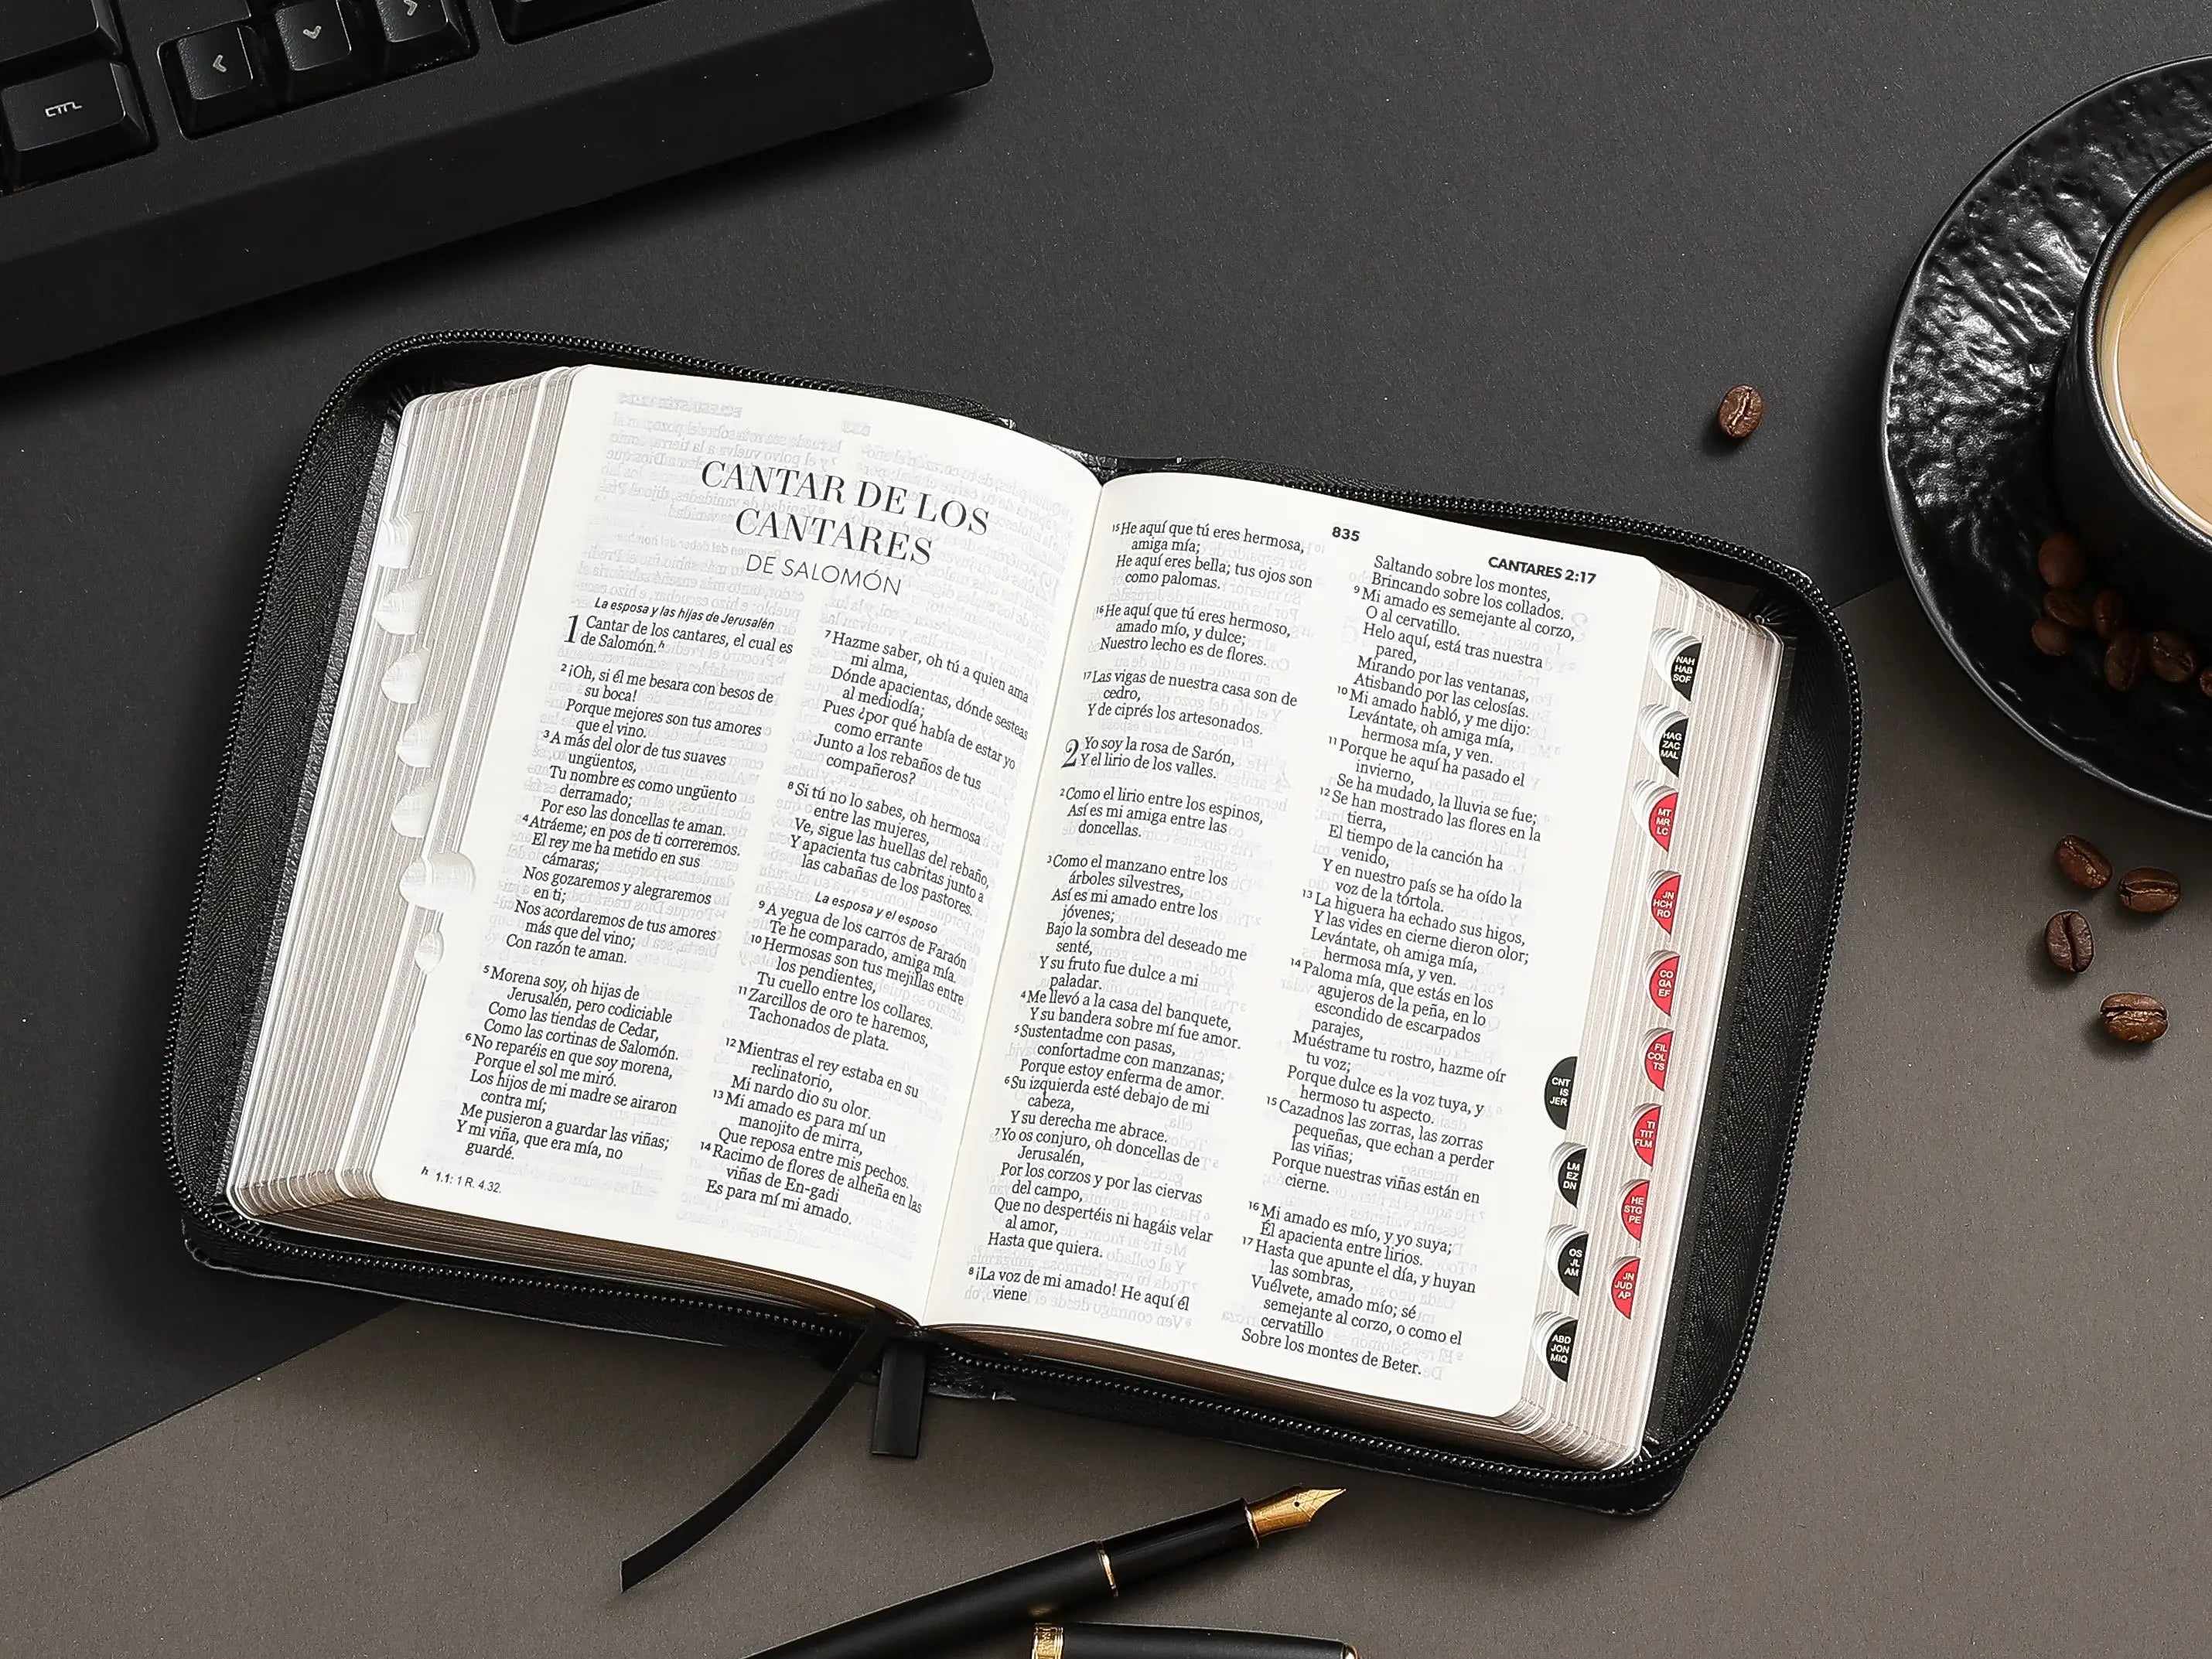 CTRL
CANTAR DE LOS
CANTARES
DE SALOMÓN
La esposa y las hijas de Jerusalén
1 Cantar de los cantares, el cual es
de Salomón. h
2 ¡Oh, si él me besara con besos de
su boca!
Porque mejores son tus amores
que el vino.
3 A más del olor de tus suaves
ungüentos,
Tu nombre es como ungüento
derramado;
Por eso las doncellas te aman.
4 Atráeme; en pos de ti correremos.
El rey me ha metido en sus
cámaras;
Nos gozaremos y alegraremos
en ti;
Nos acordaremos de tus amores
más que del vino;
Con razón te aman.
5 Morena soy, oh hijas de
Jerusalén, pero codiciable
Como las tiendas de Cedar,
Como las cortinas de Salomón.
6 No reparéis en que soy morena,
Porque el sol me miró.
Los hijos de mi madre se airaron
contra mí;
Me pusieron a guardar las viñas;
Y mi viña, que era mía, no
guardé.
h 1.1: 1 R. 4.32.
7 Hazme saber, oh tú a quien ama
mi alma,
Dónde apacientas, dónde sesteas
al mediodía;
Pues ¿por qué había de estar yo
como errante
Junto a los rebaños de tus
compañeros?
8 Si tú no lo sabes, oh hermosa
entre las mujeres,
Ve, sigue las huellas del rebaño,
Y apacienta tus cabritas junto a
las cabañas de los pastores.
La esposa y el esposo
9 A yegua de los carros de Faraón
Te he comparado, amiga mía.
10 Hermosas son tus mejillas entre
los pendientes,
Tu cuello entre los collares.
11 Zarcillos de oro te haremos,
Tachonados de plata.
12 Mientras el rey estaba en su
reclinatorio,
Mi nardo dio su olor.
13 Mi amado es para mí un
manojito de mirra,
Que reposa entre mis pechos.
14 Racimo de flores de alheña en las
viñas de En-gadi
Es para mí mi amado.
835
CANTARES 2:17
15 He aquí que tú eres hermosa,
amiga mía;
He aquí eres bella; tus ojos son
como palomas.
16 He aquí que tú eres hermoso,
amado mío, y dulce;
Nuestro lecho es de flores.
17 Las vigas de nuestra casa son de
cedro,
Y de ciprés los artesonados.
2 Yo soy la rosa de Sarón,
Y el lirio de los valles.
2 Como el lirio entre los espinos,
Así es mi amiga entre las
doncellas.
3 Como el manzano entre los
árboles silvestres,
Así es mi amado entre los
jóvenes;
Bajo la sombra del deseado me
senté,
Y su fruto fue dulce a mi
paladar.
4 Me llevó a la casa del banquete,
Y su bandera sobre mí fue amor.
5 Sustentadme con pasas,
confortadme con manzanas;
Porque estoy enferma de amor.
6 Su izquierda esté debajo de mi
cabeza,
Y su derecha me abrace.
7 Yo os conjuro, oh doncellas de
Jerusalén,
Por los corzos y por las ciervas
del campo,
Que no despertéis ni hagáis velar
al amor,
Hasta que quiera.
8 ¡La voz de mi amado! He aquí él
viene
Saltando sobre los montes,
Brincando sobre los collados.
9 Mi amado es semejante al corzo,
O al cervatillo.
Helo aquí, está tras nuestra
pared,
Mirando por las ventanas,
Atisbando por las celosías.
10 Mi amado habló, y me dijo:
Levántate, oh amiga mía,
hermosa mía, y ven.
11 Porque he aquí ha pasado el
invierno,
Se ha mudado, la lluvia se fue;
12 Se han mostrado las flores en la
tierra,
El tiempo de la canción ha
venido,
Y en nuestro país se ha oído la
voz de la tórtola.
13 La higuera ha echado sus higos,
Y las vides en cierne dieron olor;
Levántate, oh amiga mía,
hermosa mía, y ven.
14 Paloma mía, que estás en los
agujeros de la peña, en lo
escondido de escarpados
parajes,
Muéstrame tu rostro, hazme oír
tu voz;
Porque dulce es la voz tuya, y
hermoso tu aspecto.
15 Cazadnos las zorras, las zorras
pequeñas, que echan a perder
las viñas;
Porque nuestras viñas están en
cierne.
16 Mi amado es mío, y yo suya;
Él apacienta entre lirios.
17 Hasta que apunte el día, y huyan
las sombras,
Vuélvete, amado mío; sé
semejante al corzo, o como el
cervatillo
Sobre los montes de Beter.
CNT
IS
JER
LM
EZ
DN
OS
JL
AM
ABD
JON
MIQ
NAH
HAB
SOF
HAG
ZAC
MAL
MT
MR
LC
JN
HCH
RO
CO
GA
EF
FIL
COL
TS
TI
TIT
FLM
HE
STG
PE
JN
JUD
AP